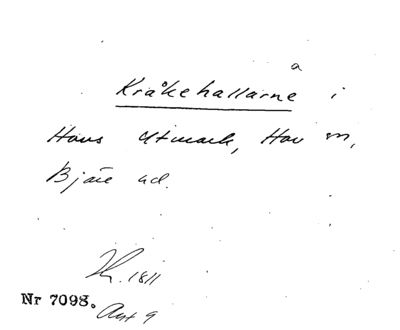 a
Kråkehallarne i
Hovs Utmark, Hov sn,
Bjäre hd.
1811
Nr 7098. Akt 9